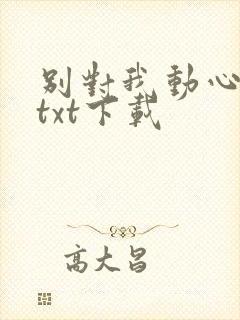 别對我動心
txt下載
高大昌